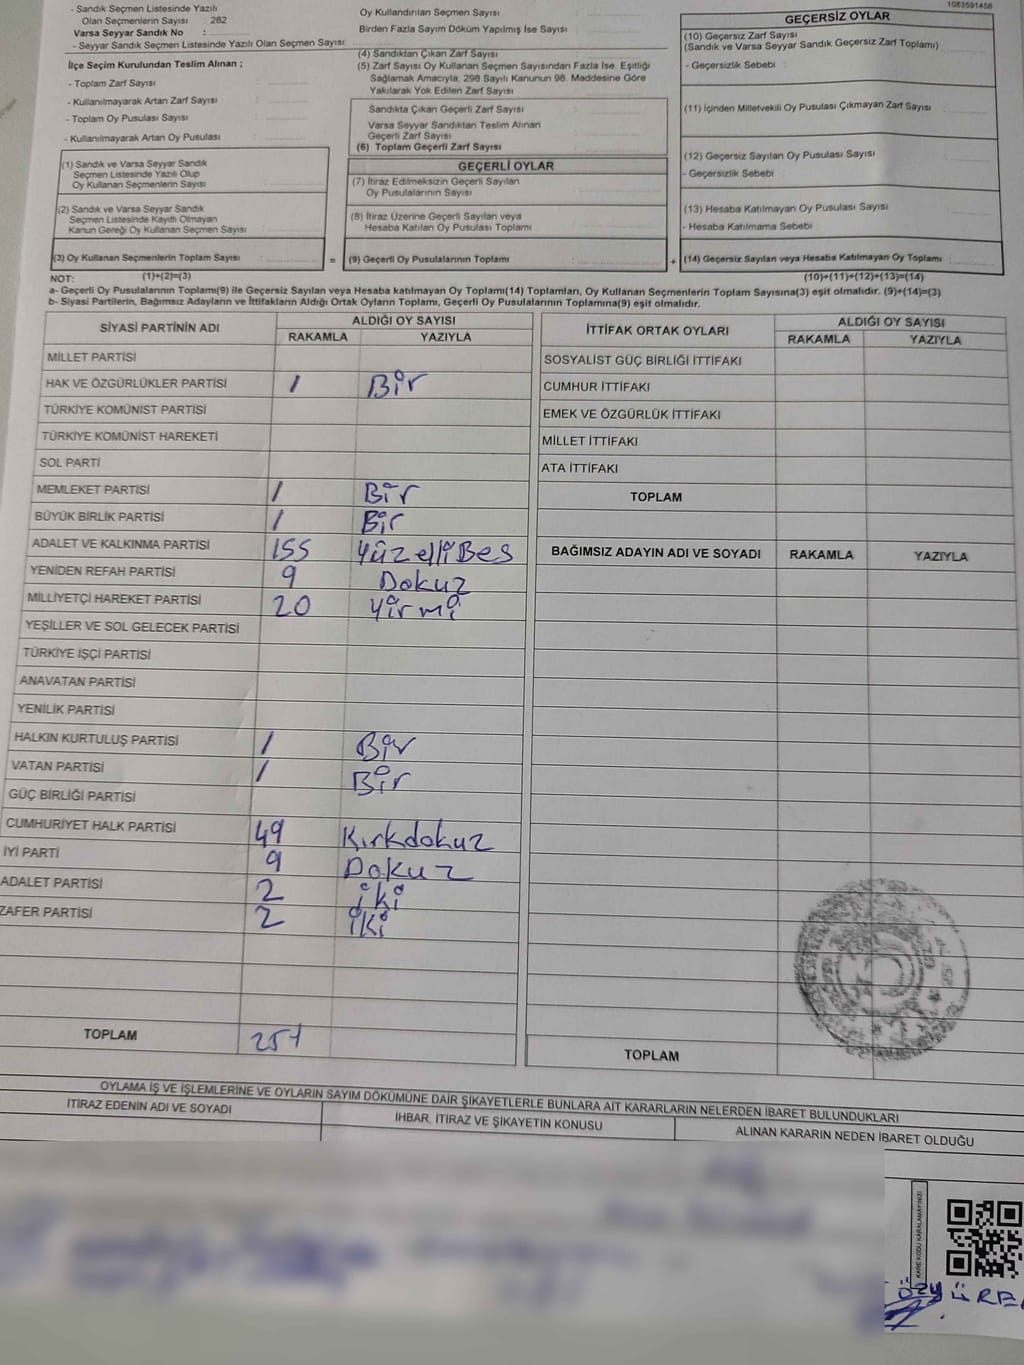 1083591456
- Sandık Seçmen Listesinde Yazılı
Olan Seçmenlerin Sayısı : 282
Varsa Seyyar Sandık No :
- Seyyar Sandık Seçmen Listesinde Yazılı Olan Seçmen Sayısı:
İlçe Seçim Kurulundan Teslim Alınan ;
- Toplam Zarf Sayısı
- Kullanılmayarak Artan Zarf Sayısı
- Toplam Oy Pusulası Sayısı
- Kullanılmayarak Artan Oy Pusulası
(1) Sandık ve Varsa Seyyar Sandık
Seçmen Listesinde Yazılı Olup
Oy Kullanan Seçmenlerin Sayısı
(2) Sandık ve Varsa Seyyar Sandık
Seçmen Listesinde Kayıtlı Olmayan
Kanun Gereği Oy Kullanan Seçmen Sayısı
(3) Oy Kullanan Seçmenlerin Toplam Sayısı =
Oy Kullandırılan Seçmen Sayısı
Birden Fazla Sayım Döküm Yapılmış İse Sayısı
(4) Sandıktan Çıkan Zarf Sayısı
(5) Zarf Sayısı Oy Kullanan Seçmen Sayısından Fazla İse, Eşitliği
Sağlamak Amacıyla, 298 Sayılı Kanunun 98. Maddesine Göre
Yakılarak Yok Edilen Zarf Sayısı
Sandıkta Çıkan Geçerli Zarf Sayısı
Varsa Seyyar Sandıktan Teslim Alınan
Geçerli Zarf Sayısı
(6) Toplam Geçerli Zarf Sayısı
GEÇERLİ OYLAR
(7) İtiraz Edilmeksizin Geçerli Sayılan
Oy Pusulalarının Sayısı
(8) İtiraz Üzerine Geçerli Sayılan veya
Hesaba Katılan Oy Pusulası Toplamı
(9) Geçerli Oy Pusulalarının Toplamı +
GEÇERSİZ OYLAR
(10) Geçersiz Zarf Sayısı
(Sandık ve Varsa Seyyar Sandık Geçersiz Zarf Toplamı)
- Geçersizlik Sebebi :
(11) İçinden Milletvekili Oy Pusulası Çıkmayan Zarf Sayısı
(12) Geçersiz Sayılan Oy Pusulası Sayısı
- Geçersizlik Sebebi
(13) Hesaba Katılmayan Oy Pusulası Sayısı
- Hesaba Katılmama Sebebi
(14) Geçersiz Sayılan veya Hesaba Katılmayan Oy Toplamı
NOT: (1)+(2)=(3) (10)+(11)+(12)+(13)=(14)
a- Geçerli Oy Pusulalarının Toplam(9) ile Geçersiz Sayılan veya Hesaba katılmayan Oy Toplamı(14) Toplamları, Oy Kullanan Seçmenlerin Toplam Sayısına(3) eşit olmalıdır. (9)+(14)=(3)
b- Siyasi Partilerin, Bağımsız Adayların ve İttifakların Aldığı Ortak Oyların Toplamı, Geçerli Oy Pusulalarının Toplamına(9) eşit olmalıdır.
SİYASİ PARTİNİN ADI ALDIĞI OY SAYISI
RAKAMLA YAZIYLA
MİLLET PARTİSİ
HAK VE ÖZGÜRLÜKLER PARTİSİ 1 Bir
TÜRKİYE KOMÜNİST PARTİSİ
TÜRKİYE KOMÜNİST HAREKETİ
SOL PARTİ
MEMLEKET PARTİSİ 1 Bir
BÜYÜK BİRLİK PARTİSİ 1 Bir
ADALET VE KALKINMA PARTİSİ 155 YüzelliBes
YENİDEN REFAH PARTİSİ 9 Dokuz
MİLLİYETÇİ HAREKET PARTİSİ 20 Yirmi
YEŞİLLER VE SOL GELECEK PARTİSİ
TÜRKİYE İŞÇİ PARTİSİ
ANAVATAN PARTİSİ
YENİLİK PARTİSİ
HALKIN KURTULUŞ PARTİSİ 1 Bir
VATAN PARTİSİ 1 Bir
GÜÇ BİRLİĞİ PARTİSİ
CUMHURİYET HALK PARTİSİ 49 Kırkdokuz
İYİ PARTİ 9 Dokuz
ADALET PARTİSİ 2 iki
ZAFER PARTİSİ 2 iki
TOPLAM 251
İTTİFAK ORTAK OYLARI ALDIĞI OY SAYISI
RAKAMLA YAZIYLA
SOSYALİST GÜÇ BİRLİĞİ İTTİFAKI
CUMHUR İTTİFAKI
EMEK VE ÖZGÜRLÜK İTTİFAKI
MİLLET İTTİFAKI
ATA İTTİFAKI
TOPLAM
BAĞIMSIZ ADAYIN ADI VE SOYADI RAKAMLA YAZIYLA
TOPLAM
OYLAMA İŞ VE İŞLEMLERİNE VE OYLARIN SAYIM DÖKÜMÜNE DAİR ŞİKAYETLERLE BUNLARA AİT KARARLARIN NELERDEN İBARET BULUNDUKLARI
İTİRAZ EDENİN ADI VE SOYADI İHBAR, İTİRAZ VE ŞİKAYETİN KONUSU ALINAN KARARIN NEDEN İBARET OLDUĞU
KARE KODU KARALAMAYINIZ!